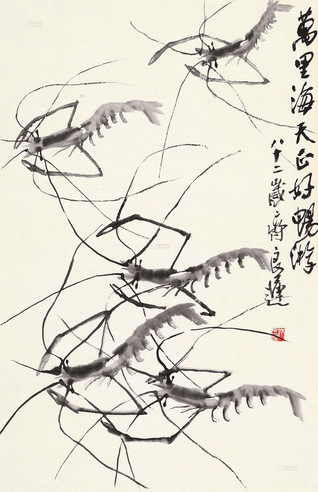 萬里海天正好暢游
八十二歲齊良蓮